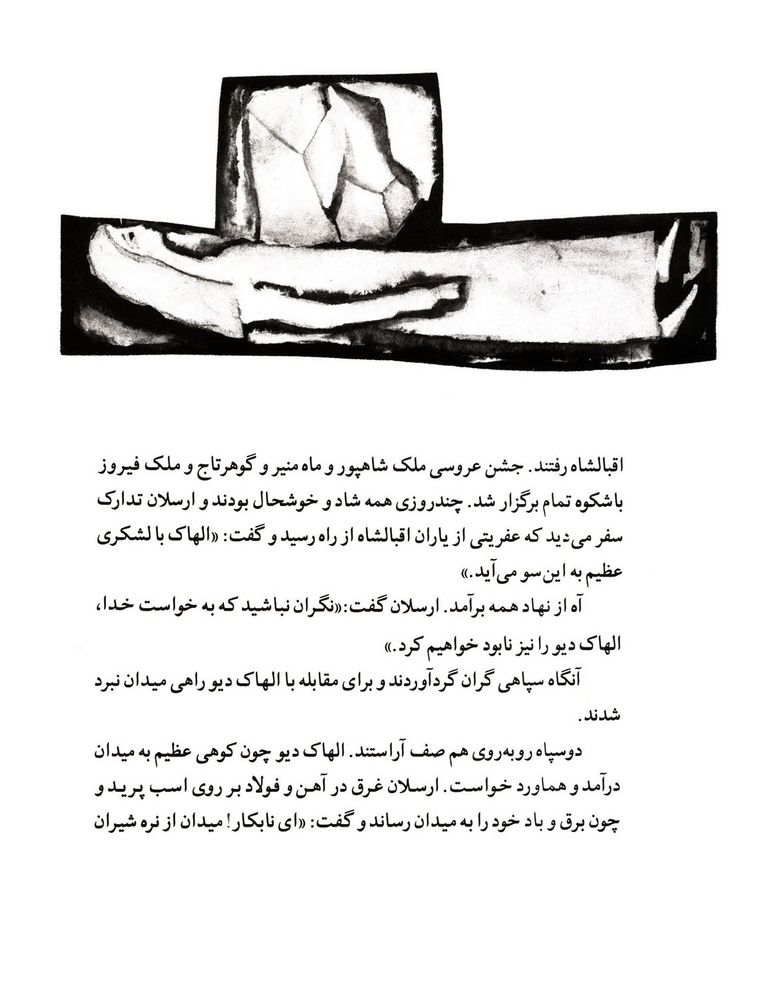 اقبالشاه رفتند. جشن عروسی ملک شاهپور و ماه منیر و گوهرتاج و ملک فیروز
باشکوه تمام برگزار شد. چندروزی همه شاد و خوشحال بودند و ارسلان تدارک
سفر می‌دید که عفریتی از یاران اقبالشاه از راه رسید و گفت: «الهاک با لشکری
عظیم به این‌سو می‌آید.»
آه از نهاد همه برآمد. ارسلان گفت:«نگران نباشید که به خواست خدا،
الهاک دیو را نیز نابود خواهیم کرد.»
آنگاه سپاهی گران گردآوردند و برای مقابله با الهاک دیو راهی میدان نبرد
شدند.
دوسپاه روبه‌روی هم صف آراستند. الهاک دیو چون کوهی عظیم به میدان
درآمد و هماورد خواست. ارسلان غرق در آهن و فولاد بر روی اسب پرید و
چون برق و باد خود را به میدان رساند و گفت: «ای نابکار! میدان از نره شیران